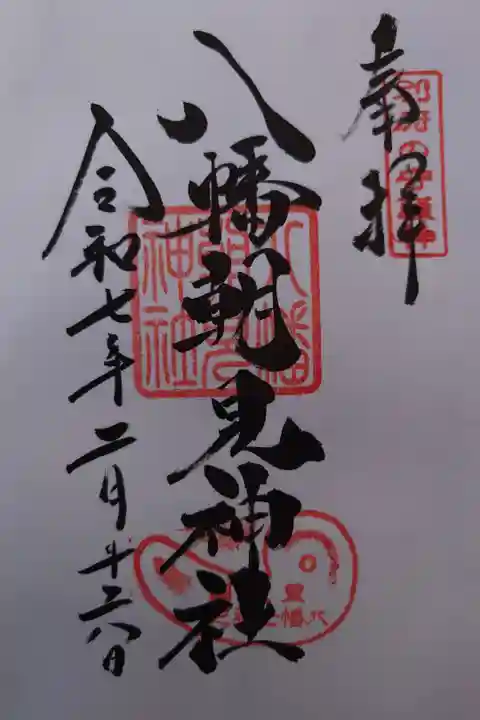 奉拝
別府の守護神
八幡朝見神社
八幡朝見神社
令和七年二月十六日